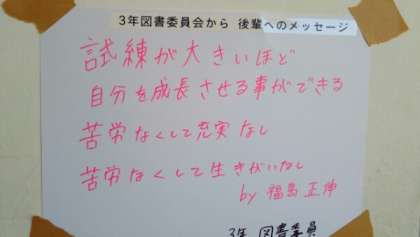 3年図書委員会から 後輩へのメッセージ
試練が大きいほど
自分を成長させる事ができる
苦労なくして充実なし
苦労なくして生きがいなし
by 福島正伸
3年 図書委員